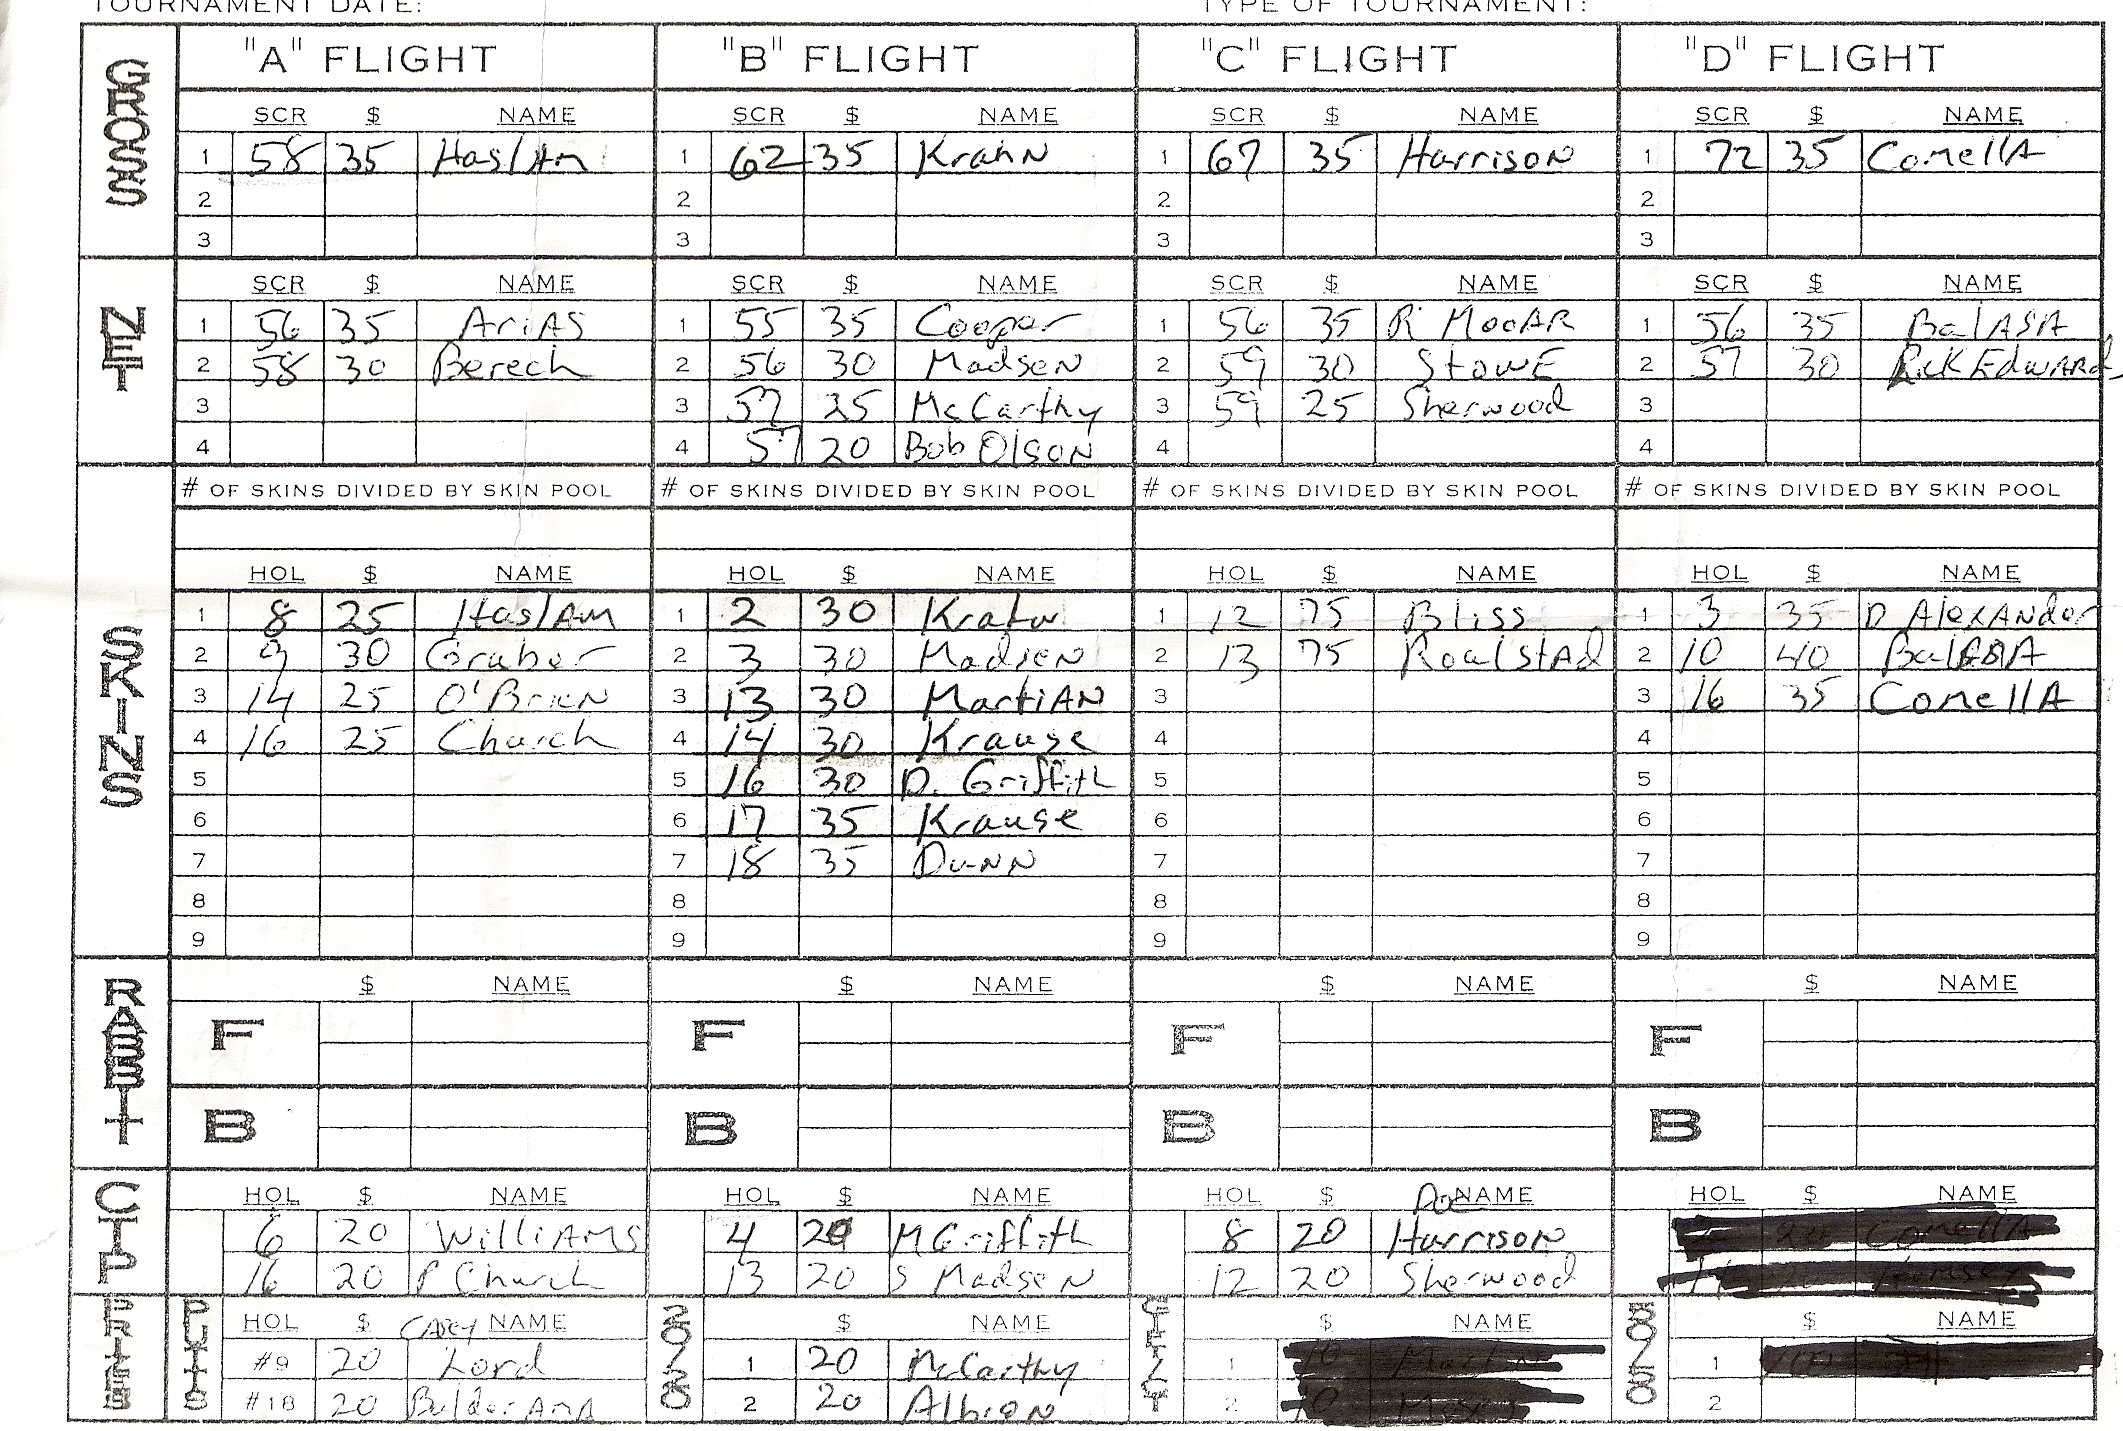 TOURNAMENT DATE: TYPE OF TOURNAMENT:
GROSS "A" FLIGHT "B" FLIGHT "C" FLIGHT "D" FLIGHT
SCR $ NAME SCR $ NAME SCR $ NAME SCR $ NAME
1 58 35 HaslAm 1 62 35 KrahN 1 67 35 HarrisoN 1 72 35 ComellA
2 2 2 2
3 3 3 3
NET SCR $ NAME SCR $ NAME SCR $ NAME SCR $ NAME
1 56 35 AriAS 1 55 35 Cooper 1 56 35 R MooAR 1 56 35 BalASA
2 58 30 Berech 2 56 30 MadseN 2 59 30 StowE 2 57 30 Rick EdwARds
3 3 57 25 McCarthy 3 59 25 Sherwood 3
4 4 57 20 Bob OlsoN 4 4
SKINS # OF SKINS DIVIDED BY SKIN POOL # OF SKINS DIVIDED BY SKIN POOL # OF SKINS DIVIDED BY SKIN POOL # OF SKINS DIVIDED BY SKIN POOL
HOL $ NAME HOL $ NAME HOL $ NAME HOL $ NAME
1 8 25 HaslAm 1 2 30 1 12 75 Bliss 1 3 35 D AlexANder
2 9 30 Graber 2 3 30 MadseN 2 13 75 RoalstAd 2 10 40 BalASA
3 14 25 O'BrieN 3 13 30 MartiAN 3 3 16 35 ComellA
4 16 25 Church 4 14 30 Krause 4 4
5 5 16 30 D. Griffith 5 5
6 6 17 35 Krause 6 6
7 7 18 35 DuNN 7 7
8 8 8 8
9 9 9 9
RABBIT $ NAME $ NAME $ NAME $ NAME
F F F F
B B B B
CTP HOL $ NAME HOL $ NAME HOL $ NAME HOL $ NAME
6 20 WilliAMS 4 20 M Griffith 8 20 Doc HarrisoN 20 ComellA
16 20 P Church 13 20 S MadseN 12 20 Sherwood
PUTTS HOL $ NAME 20/20 $ NAME $ NAME 50/50 $ NAME
#9 20 CASEy Lord 1 20 McCarthy 1 1
#18 20 BalderAmA 2 20 AlbioN 2 2